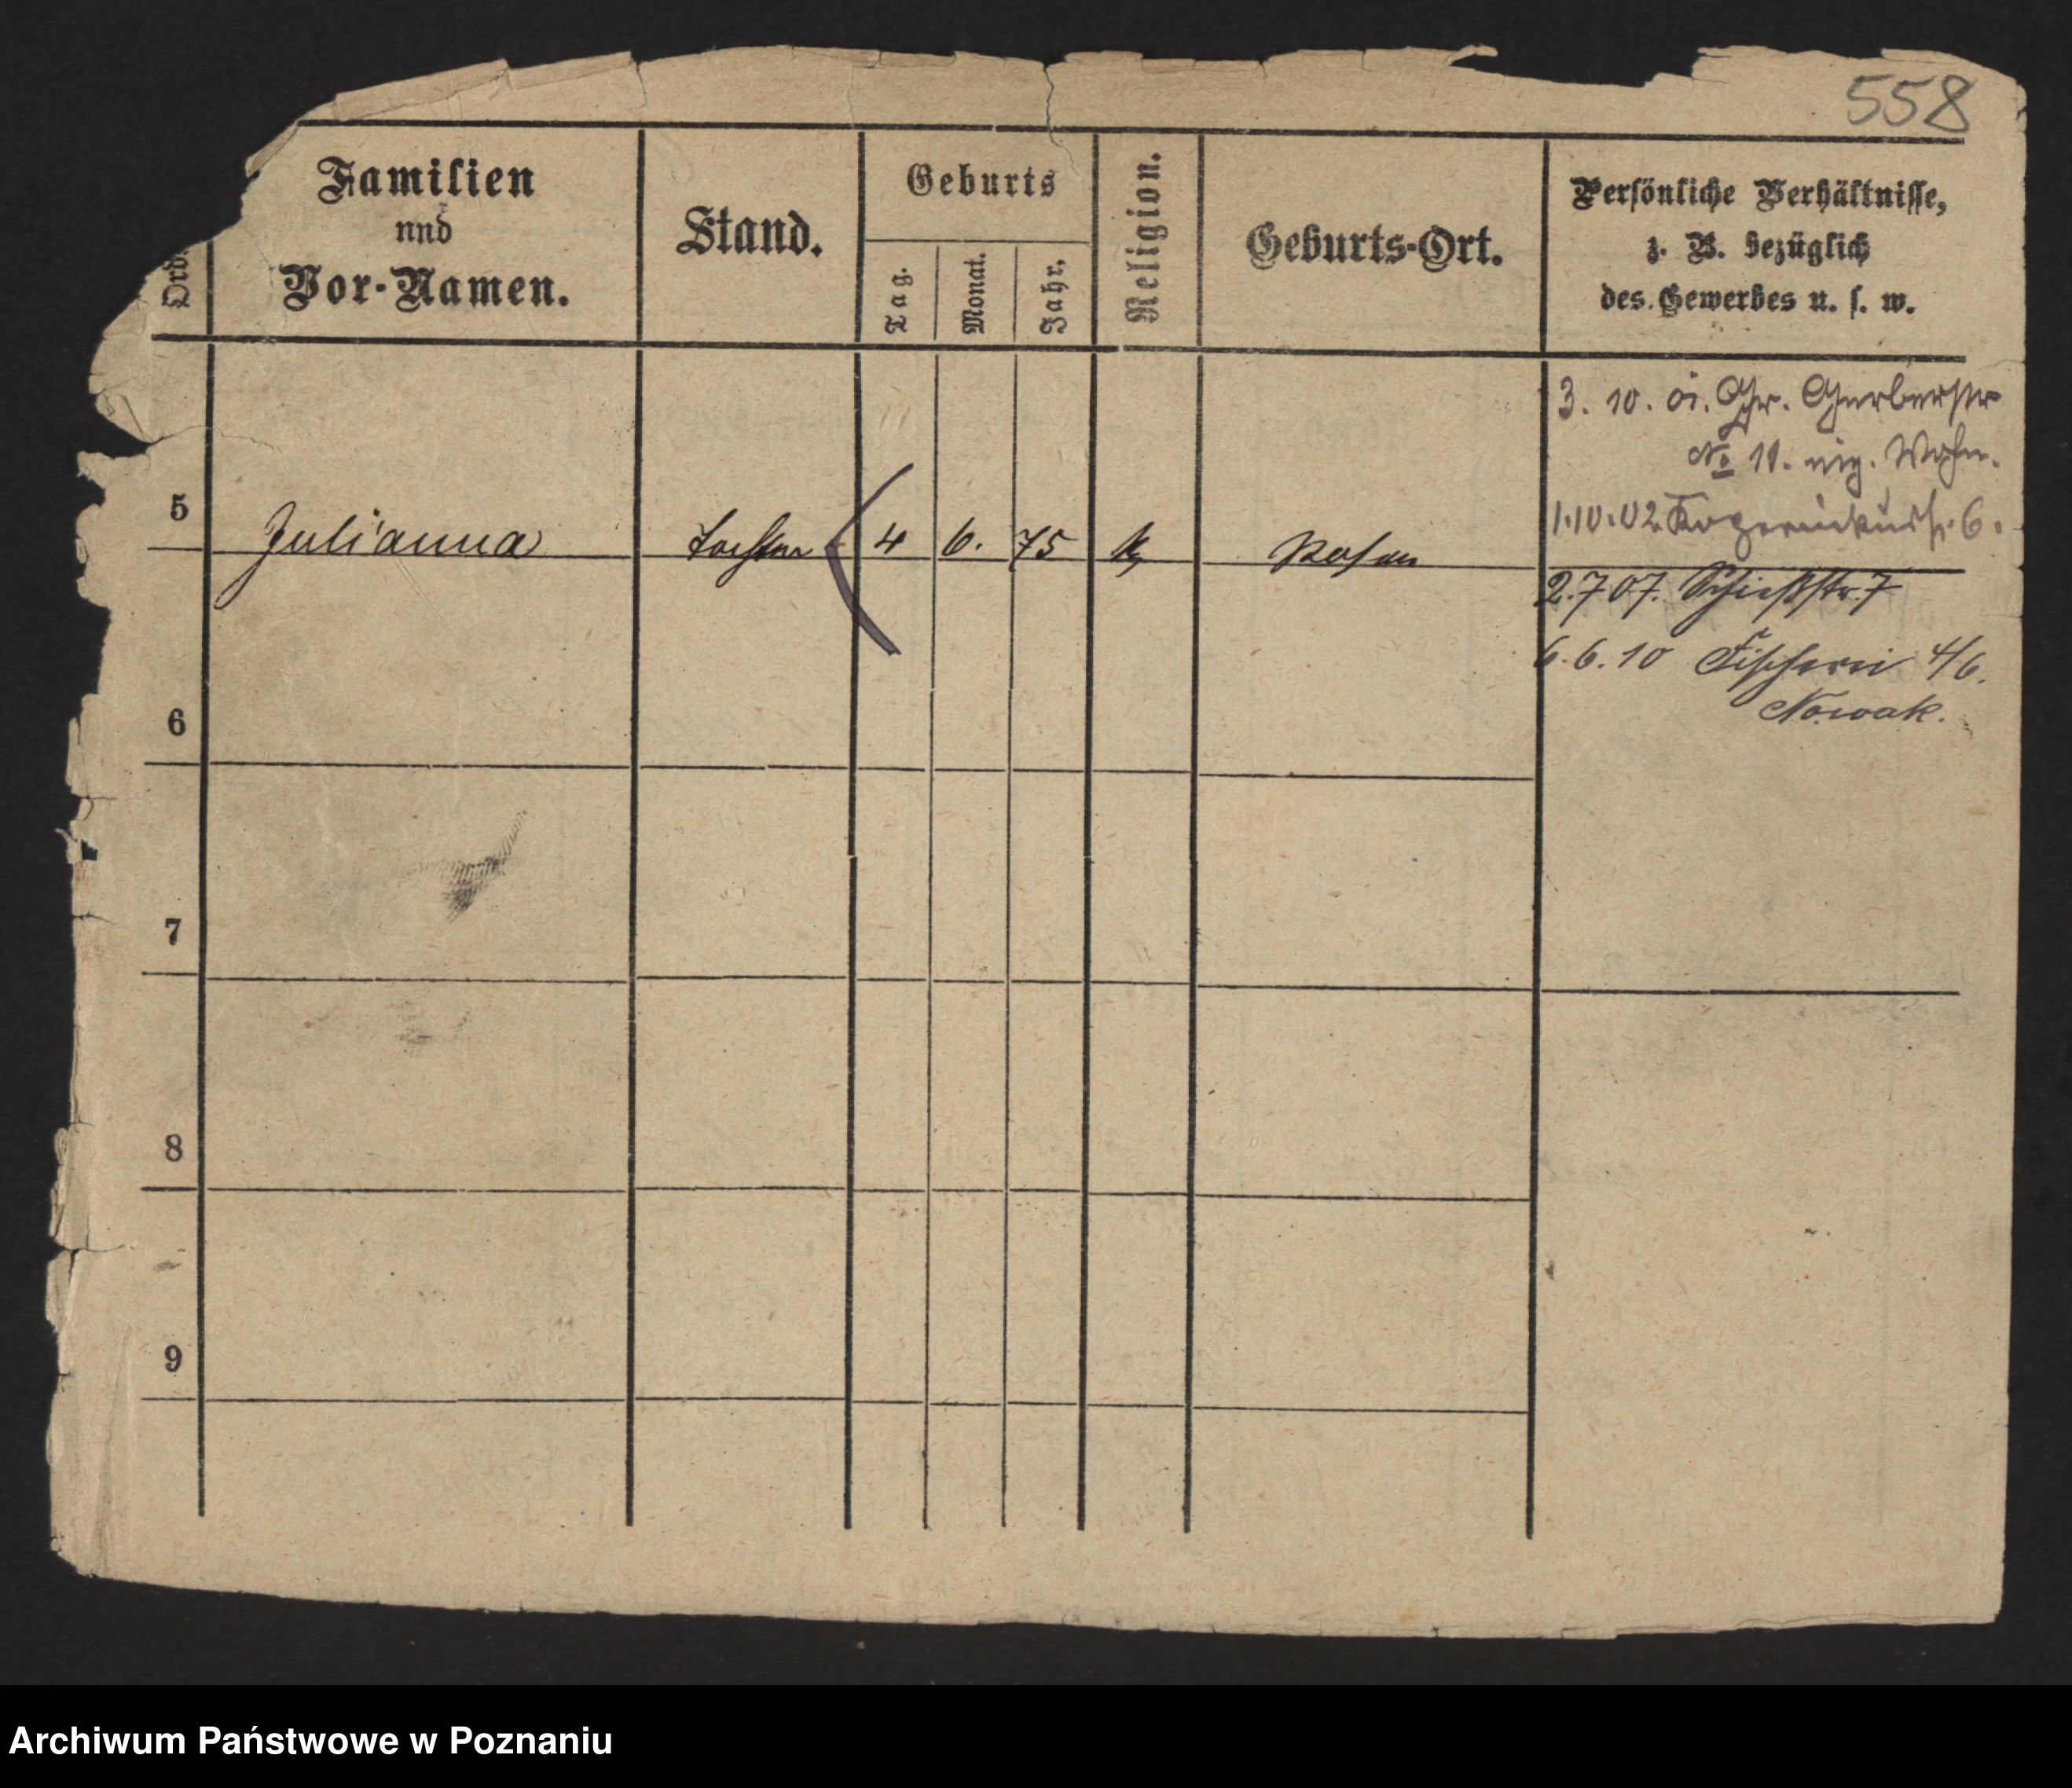 558
Ord.
Familien
und
Vor-Namen.
Stand.
Geburts
Tag.
Monat.
Jahr.
Religion.
Geburts-Ort.
Persönliche Verhältnisse,
z. B. bezüglich
des Gewerbes u. s. w.
3. 10. 01. Gr. Gerberstr
No 11. eig. Wohn.
5 Julianna Tochter 4 6. 75 k Posen
1.10.02 6.
2.7.07. Schießstr. 7
6.6.10 Fischerei 4/6.
Nowak.
6
7
8
9
Archiwum Państwowe w Poznaniu